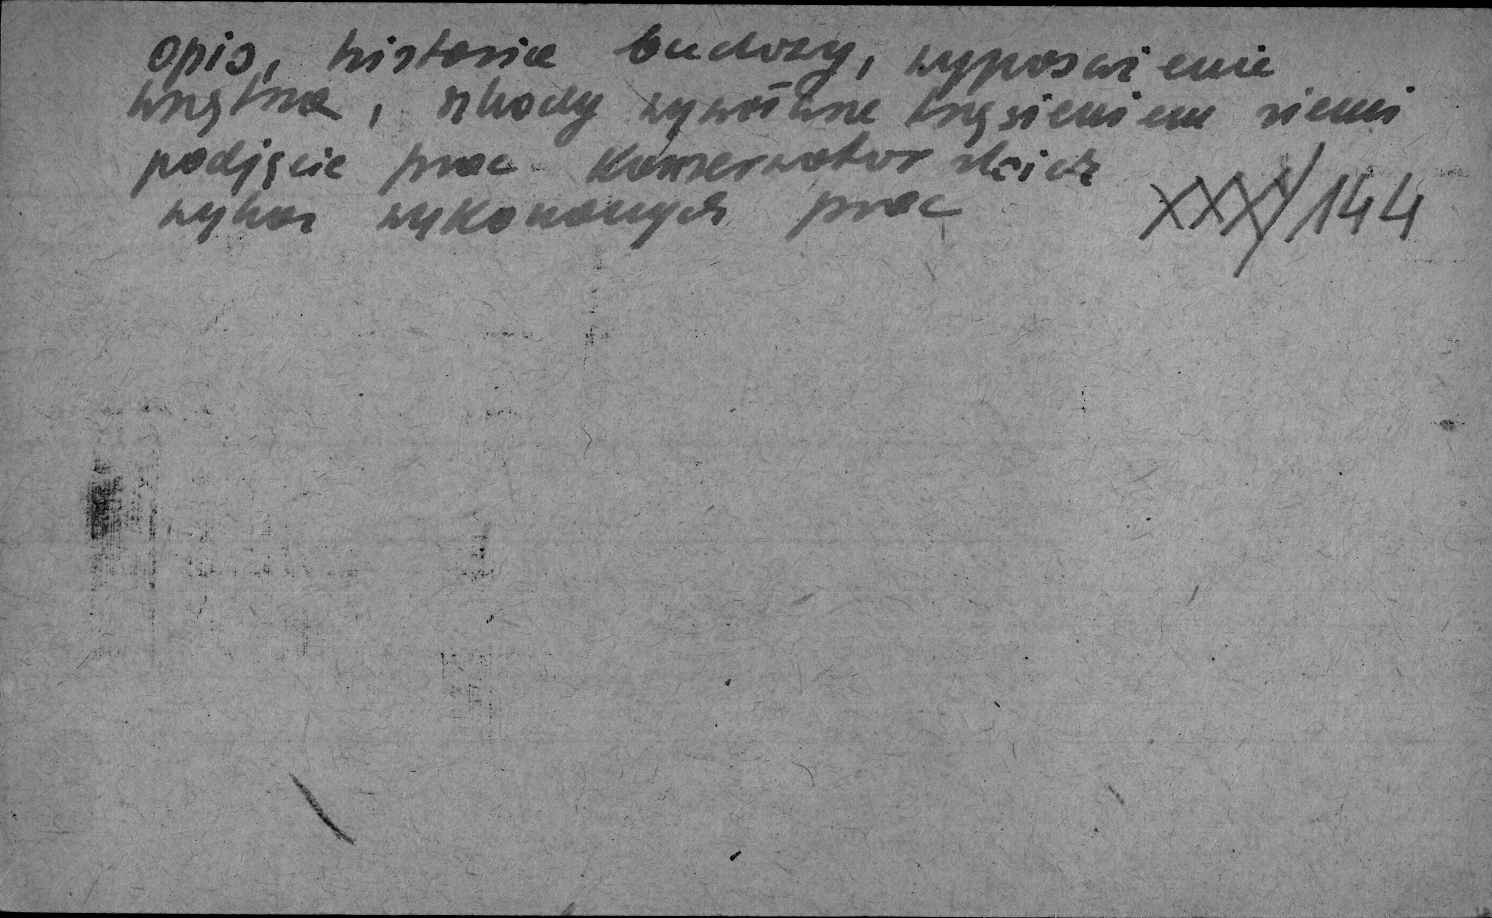 opis, historia budowy, wyposażenie
wnętrza, szkody wywołane trzęsieniem ziemi
podjęcie prac konserwatorskich
wykaz wykonanych prac
XXX/144